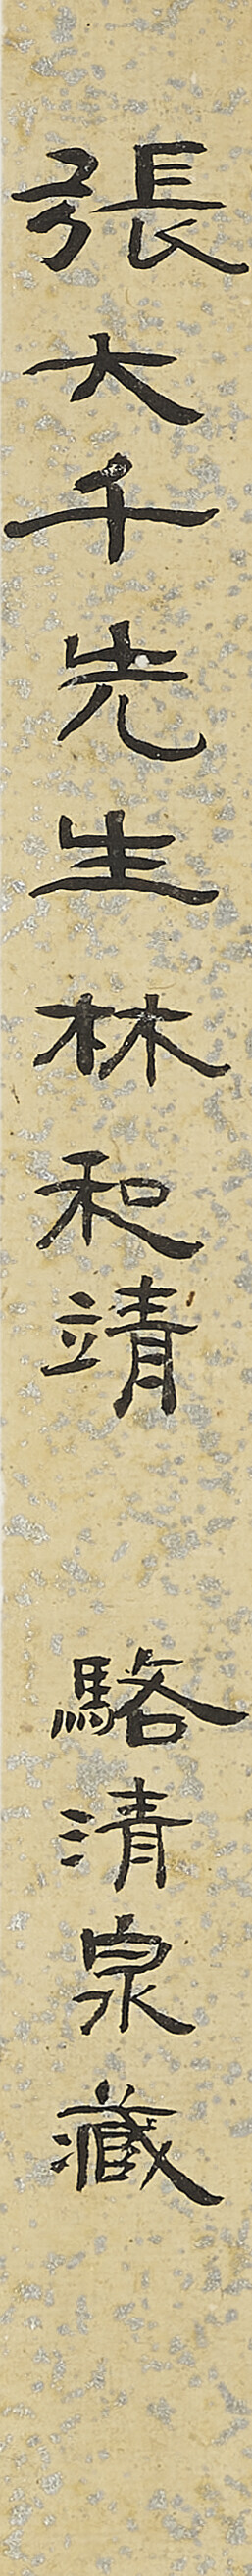 張大千先生林和靖 駱清泉藏